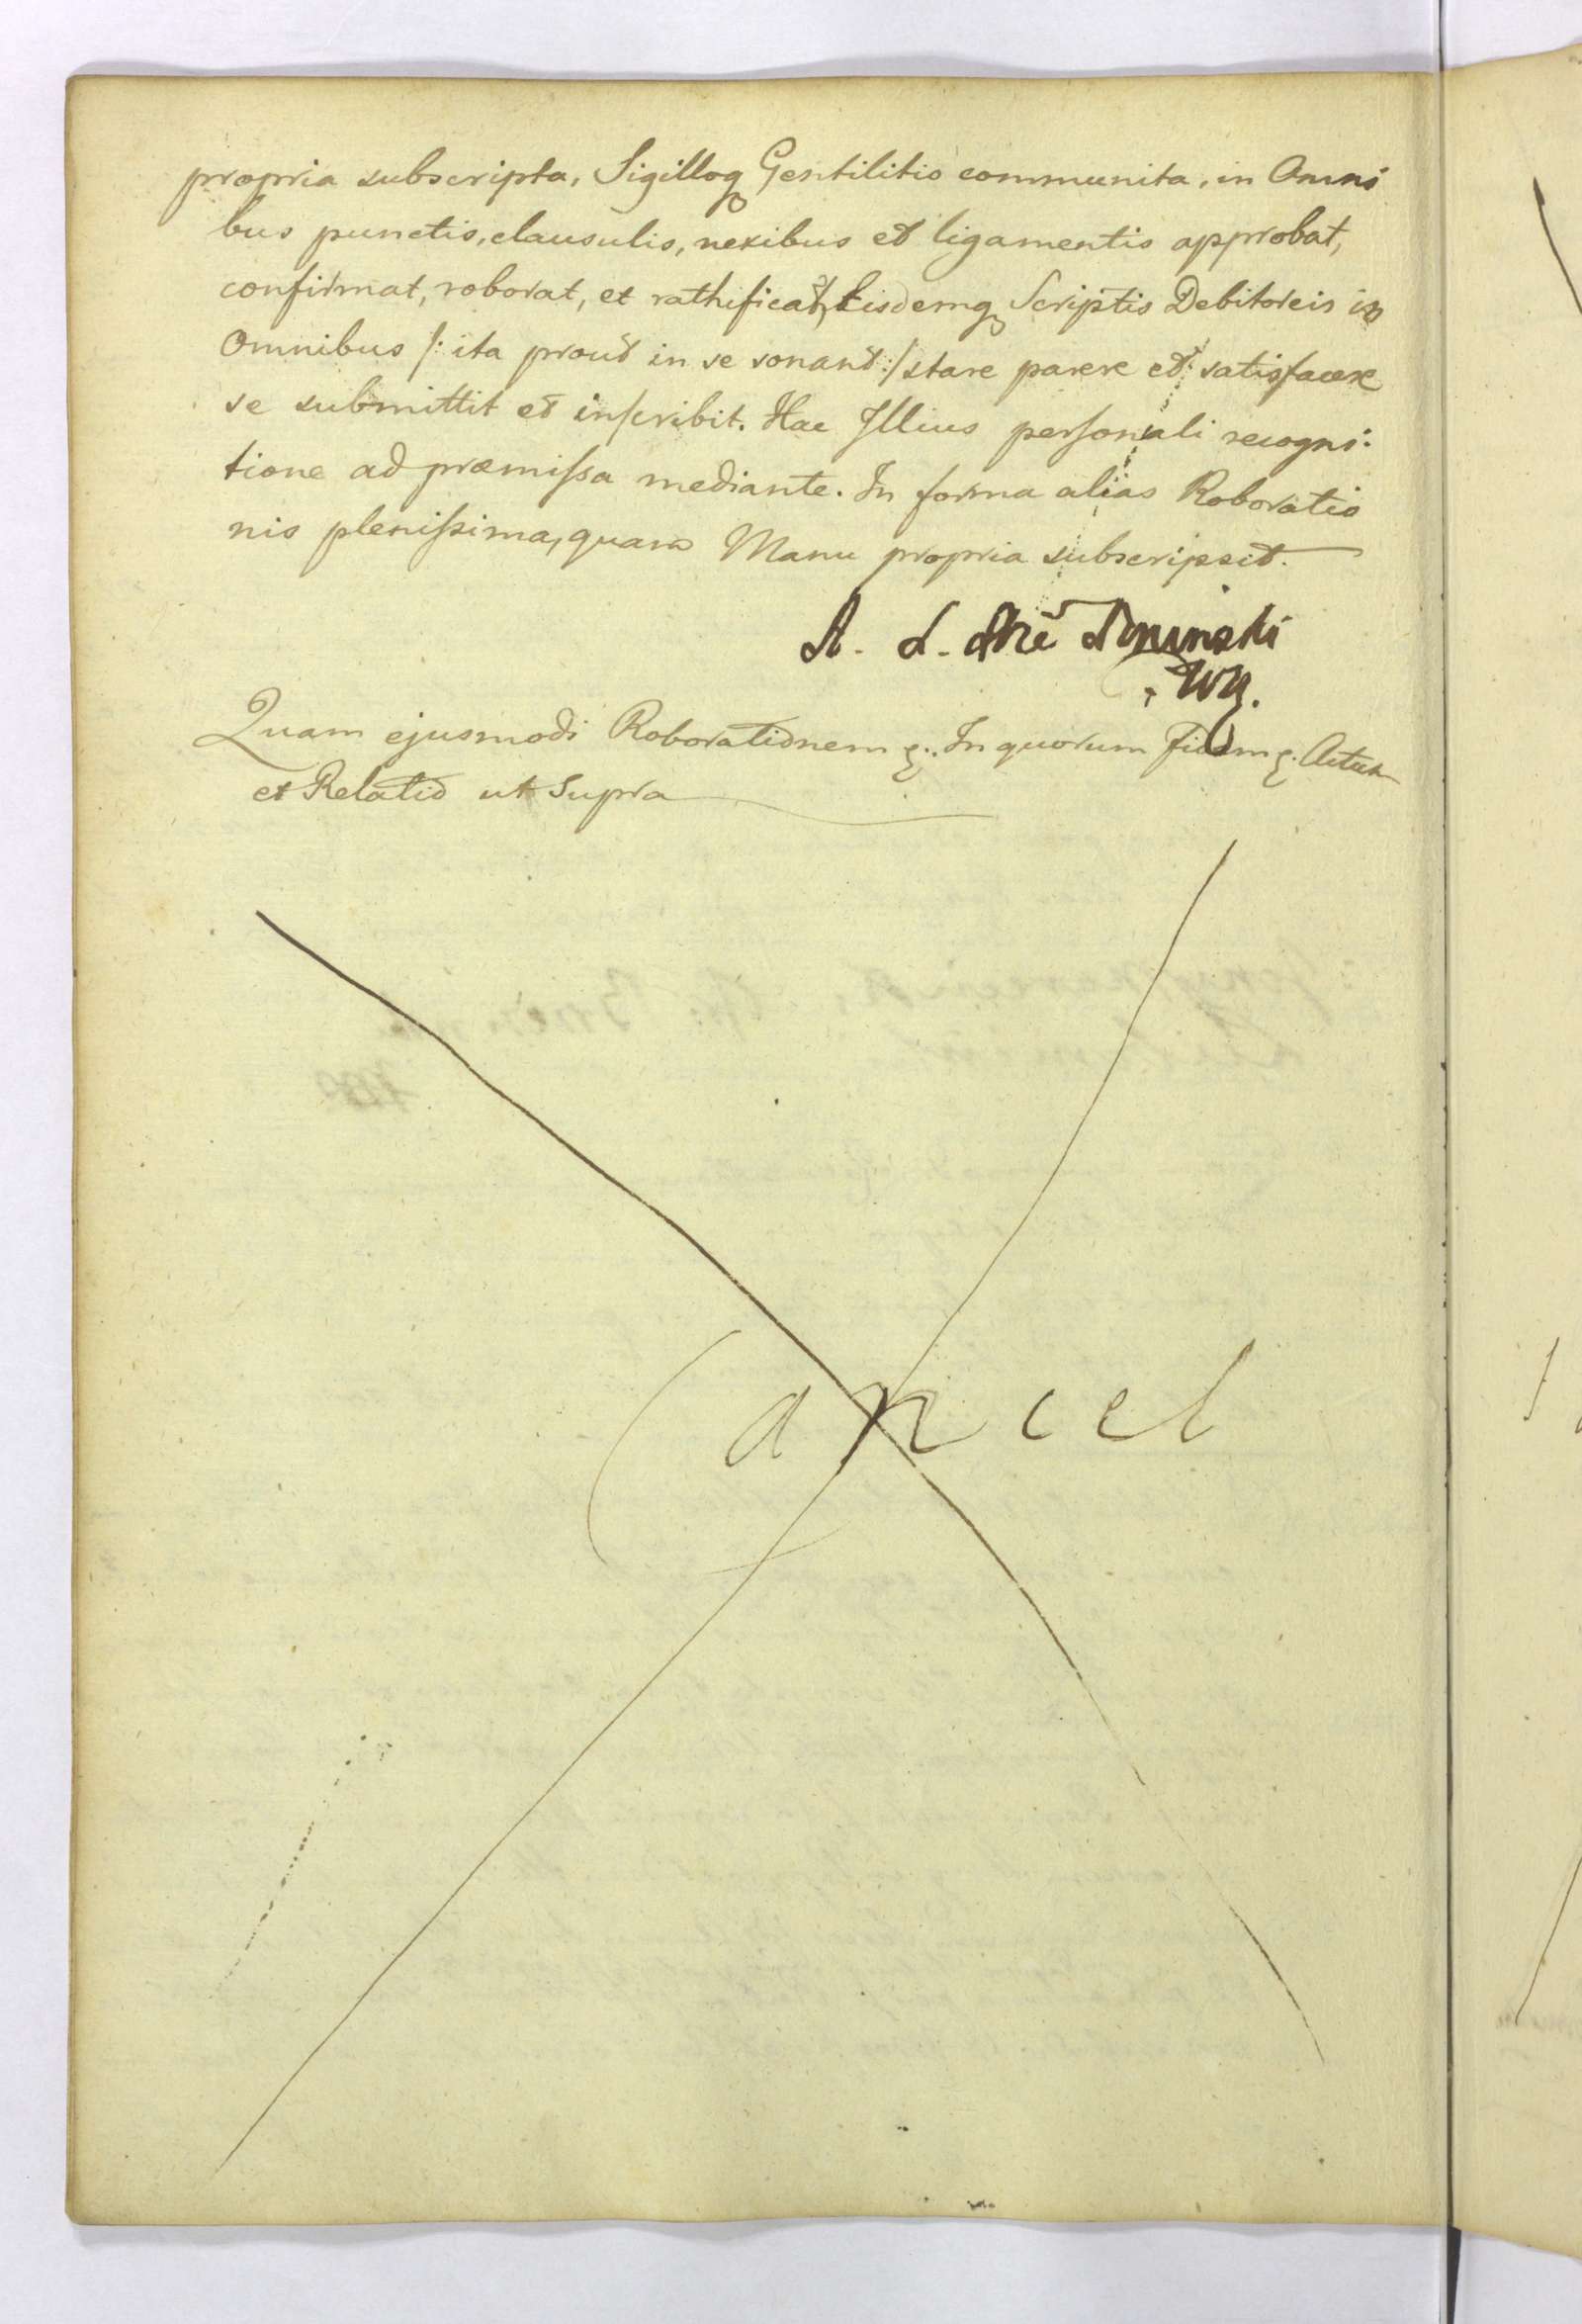 propria subscripta, Sigilloq Gentilitio communita, in Omni
bus punctis, clausulis, nexibus et ligamentis approbat,
confirmat, roborat, et rathificat, Eisdemq Scriptis Debitoreis in
Omnibus /: ita prout in se sonant :/ stare parere et satisfacere
se submittit et inscribit. Hac Illius personali recogni:
tione ad præmissa mediante. In forma alias Roboratio
nis plenissima, quam Manu propria subscripsit.
A. L.
Quam ejusmodi Roborationem &. In quorum Fidem &. Actum
et Relatio ut Supra
Cancel